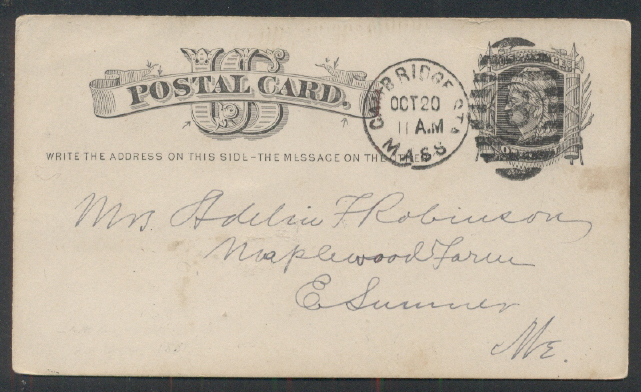 US
POSTAL CARD.
CAMBRIDGE STA.
OCT 20
11 A.M
MASS
WRITE THE ADDRESS ON THIS SIDE-THE MESSAGE ON THE
Mrs Adelin F Robinson
Maplewood Farm
E Sumner
Me.